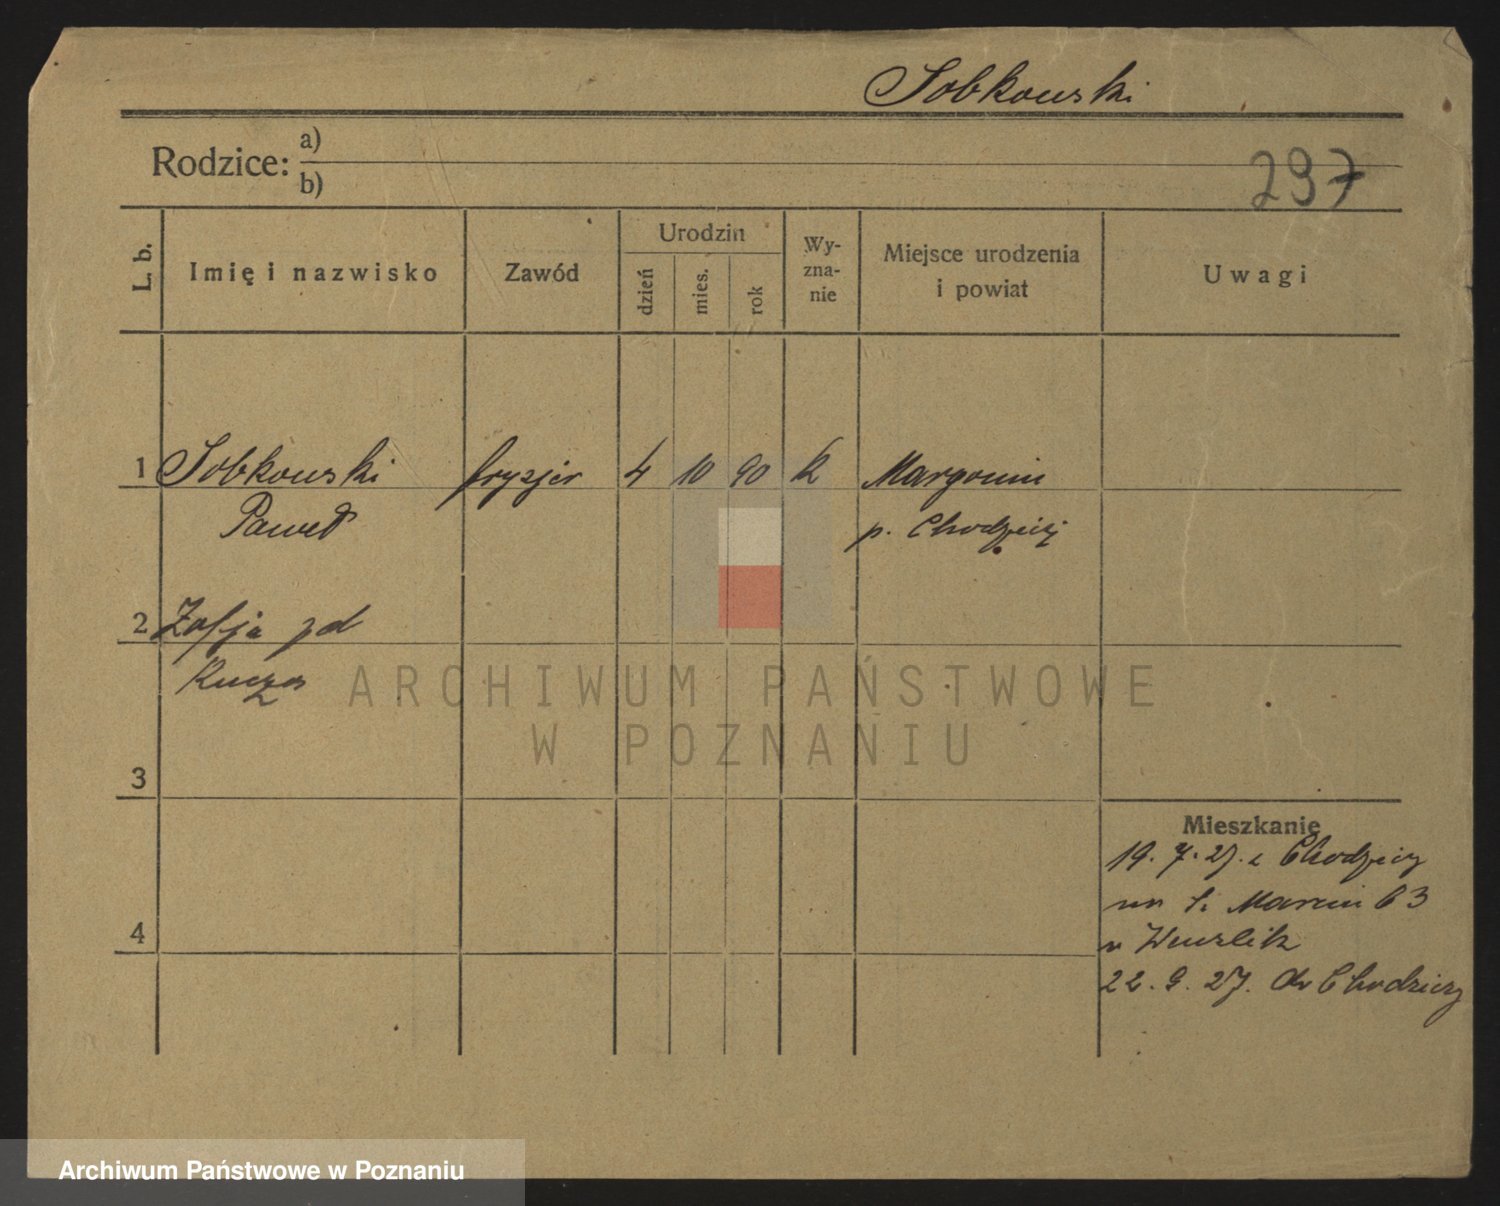 Sobkowski
Rodzice: a)
b)
297
L. b.
Imię i nazwisko
Zawód
Urodzin
dzień
mies.
rok
Wy-
zna-
nie
Miejsce urodzenia
i powiat
Uwagi
1 Sobkowski fryzjer 4 10 90 k Margonin
Paweł p. Chodzież
2 Zofja zd
Kucza
3
4
Mieszkanie
19. 7. 27. z Chodzieży
na Marcin 63
22. 9. 27. do Chodzieży
ARCHIWUM PAŃSTWOWE
W POZNANIU
Archiwum Państwowe w Poznaniu